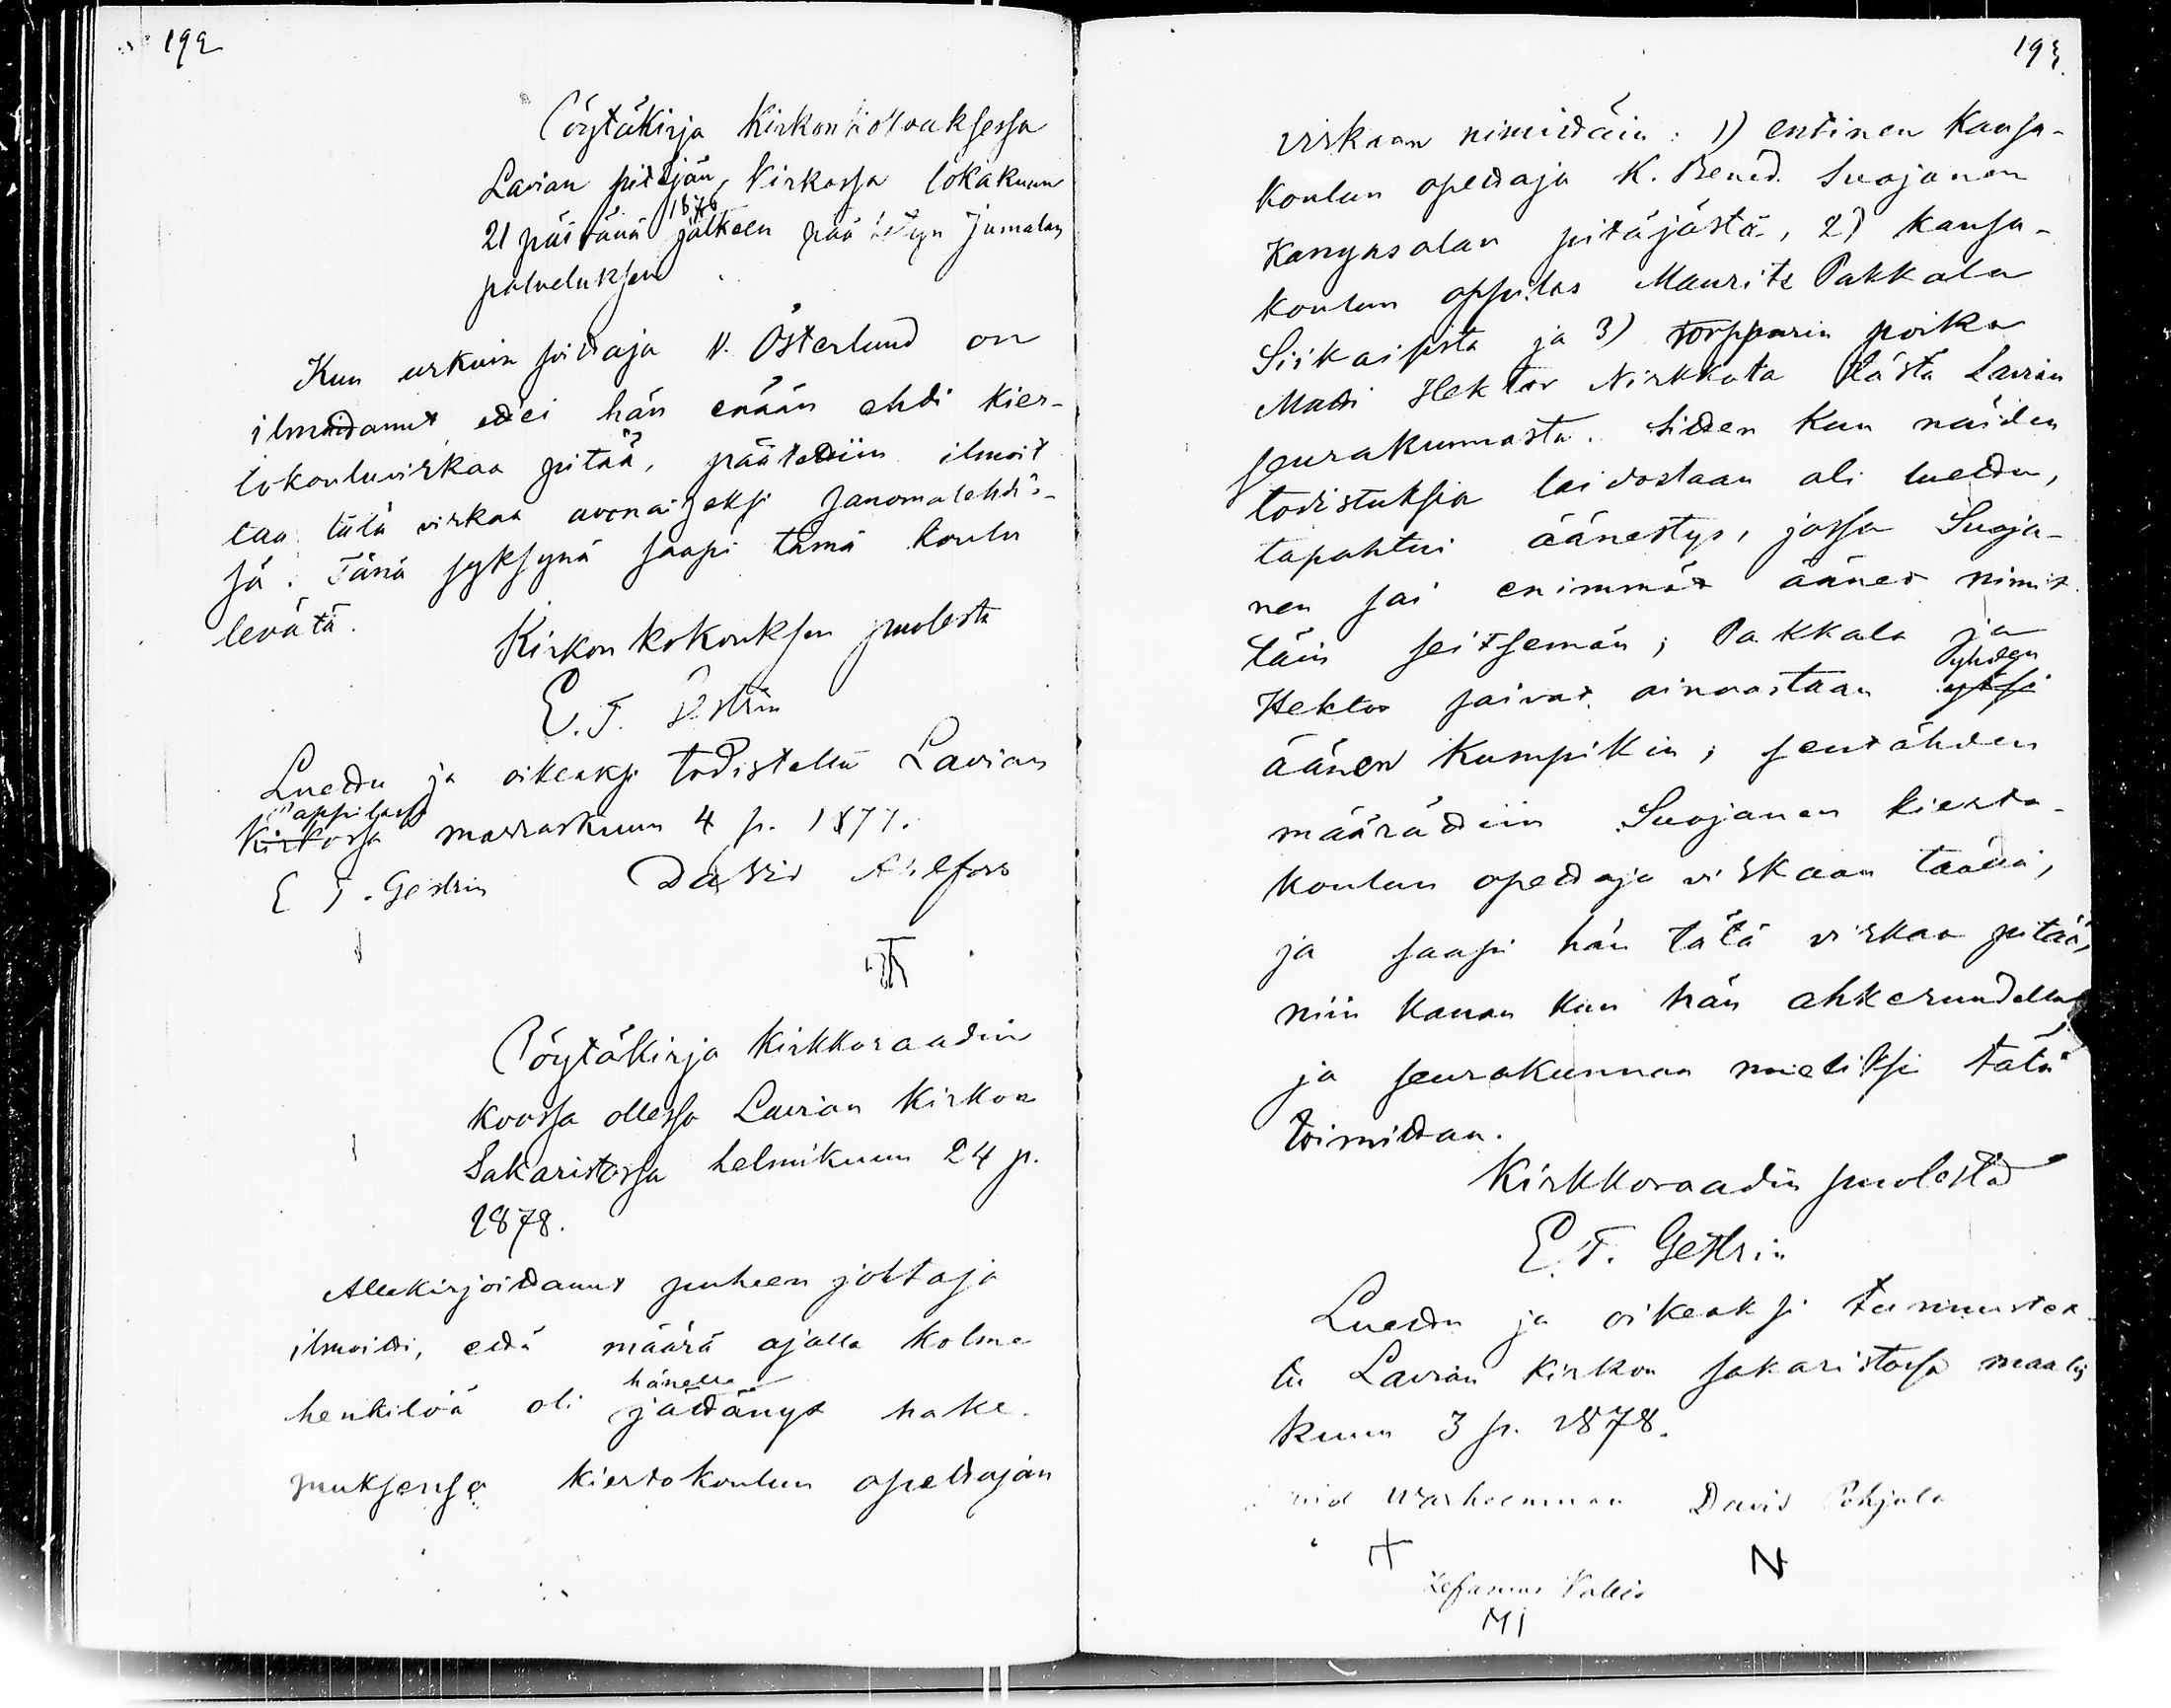 192
Pöytäkirja Kirkonkokouksessa
Lavian pitäjän Kirkossa lokakuun
21 päivänä 1876 jälkeen päätetyn Jumalan
palveluksen
Kun urkuin soittaja N. Österlund on
ilmoittanut ettei hän enään ehdi kier-
tokouluvirkaa pitää, päätettiin ilmoit
taa tätä virkaa avonaiseksi sanomalehdis-
sä. Tänä syksynä saapi tämä koulu
levätä.
Kirkon kokouksen puolesta
E. T. Gestrin
Luettu ja oikeaksi todistettu Lavian
Pappilassa
Kirkossa marraskuun 4 p. 1877.
E T. Gestrin David
Pöytäkirja Kirkkoraadin
koossa ollessa Lavian Kirkon
Sakaristossa helmikuun 24 p.
1878.
Allekirjoittanut puheen johtaja
ilmoitti, että määrä ajalla kolme
hänelle
henkilöä oli jättänyt hake-
muksensa kiertokoulun opettajan
193.
virkaan nimittäin: 1) entinen Kansa-
koulun opettaja K. Bened. Suojanen
Kangasalan pitäjästä, 2) kansa-
koulun oppilas Maurits Pakkala
Siikaisista ja 3) torpparin poika
Matti Hektor Nirkkola tästä Lavian
seurakunnasta. Sitten kun näiden
todistuksia taidostaan oli luettu,
tapahtui äänestys, jossa Suoja-
nen sai enimmät äänet nimit
täin seitsemän; Pakkala ja
yhden
Hektor saivat ainoastaan yksi
äänen kumpikin; sentähden
määrättiin Suojanen kierto-
koulun opettaja virkaan täällä,
ja saapi hän tätä virkaa pitää,
niin kauan kun hän ahkeruudella
ja seurakunnan mieliksi tätä
toimittaa.
Kirkkoraadin puolesta
E. T. Gestrin
Luettu ja oikeaksi tunnustet-
tu Lavian Kirkon sakaristossa maalis
kuun 3 p. 1878.
David Pohjala
N